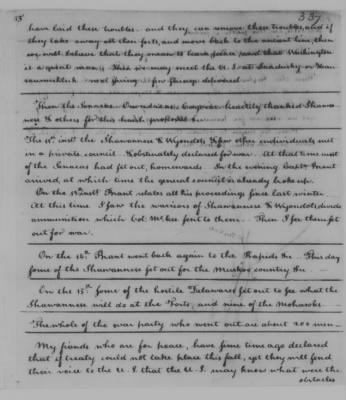 15
337
have laid these troubles. and they can remove these troubles, and if
they take away all their forts, and move back to the ancient line, then
we will believe that they mean to have peace, and that Washington
is a great man; Then we may meet the U.S. at Sandusky or
next spring. few strings delivered
Then the Senecas Onondagas, heartily thanked Shawa-
nese & others for this
The 11th inst. the Shawannese & Wyandots & few other individuals met
in a private council. & obstinately declared for war. At that time most
of the Senecas had set out, homewards. In the evening Capt. Brant
arrived, at which time the general council is already broke up.
On the inst. Brant relates all his proceedings since last winter.
At this time I saw the warriors of Shawannese & Wyandots divide
ammunition which Col. McKee sent to them. Then I see them set
out for war.
On the 14th Brant went back again to the Rapids &c. This day
some of the Shawannese set out for the Muskoe country &c.
On the 15th. some of the hostile Delawares set out to see what the
Shawannese will do at the Forts, and nine of the Mohawks.
The whole of the war party who went out are about 200 men.
My friends who are for peace, have some time ago declared
that if treaty could not take place this fall, yet they will send
their voice to the U.S. that the U.S. may know what were the
obstacles